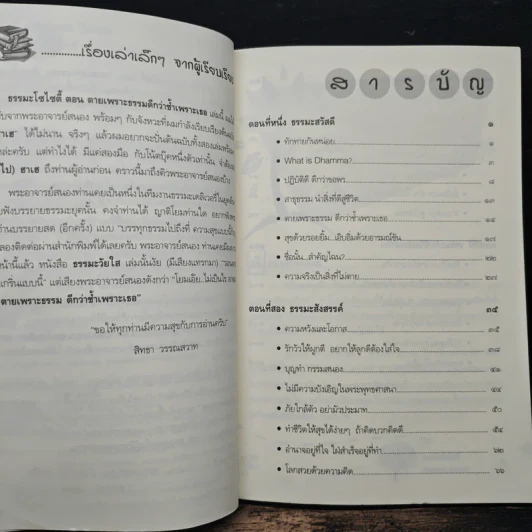 .............เรื่องเล่าเล็กๆ จากผู้เรียบเรียง
ธรรมะโซไซตี้ ตอน ตายเพราะธรรมดีกว่าช้ำเพราะเธอ เล่มนี้
จากพระอาจารย์สนอง พร้อมๆ กับจังหวะที่ผมกำลังเรียบเรียง
ได้ไม่นาน จริงๆ แล้วผมอยากจะปั่นต้นฉบับทั้งสองเล่มพร้อม
ล่ะครับ แต่ทำไงได้ มีแค่สองมือ กับโน้ตบุ๊คหนึ่งตัวเท่านั้น
ไป) ฮาเฮ ถึงท่านผู้อ่านก่อน คราวนี้มาถึงคิวพระอาจารย์สนองบ้าง
พระอาจารย์สนองท่านเคยเป็นหนึ่งในทีมงานธรรมะเดลิเวอรี่
ฟังบรรยายธรรมะยุคนั้น คงจำท่านได้ ญาติโยมท่านใด
บรรยายสด (อีกครั้ง) แบบ "บรรทุกธรรมไปถึงที่
ติดต่อผ่านสำนักพิมพ์ได้เลยครับ พระอาจารย์สนอง
หน้านี้แล้ว หนังสือ ธรรมะวัยใส เล่มนั้นไง (มีเสียงแทรกมา)
เกริ่นแบบนี้" แต่เสียงพระอาจารย์สนองดังกว่า "โยมเอ๊ย
ตายเพราะธรรม ดีกว่าช้ำเพราะเธอ"
"ขอให้ทุกท่านมีความสุขกับการอ่านครับ"
สิทธา วรรณสวาท
สารบัญ
ตอนที่หนึ่ง ธรรมะสวัสดี ๑
• ทักทายกันหน่อย ๑
• What is Dhamma? ๓
• ปฏิบัติดี ดีกว่าขอพร ๘
• สาธุธรรม นำสิ่งที่ดีสู่ชีวิต ๑๑
• ตายเพราะธรรม ดีกว่าช้ำเพราะเธอ ๑๔
• สุขด้วยรอยยิ้ม...เอิบอิ่มด้วยอารมณ์ขัน ๑๗
• ชื่อนั้น...สำคัญไฉน? ๒๒
• ความจริงเป็นสิ่งที่ไม่ตาย ๒๗
ตอนที่สอง ธรรมะสังสรรค์ ๓๕
• ความหวังและโอกาส ๓๕
• รักวัวให้ผูกดี อยากให้ลูกดีต้องใส่ใจ ๓๘
• บุญทำ กรรมสนอง ๔๑
• ไม่มีความบังเอิญในพระพุทธศาสนา ๔๔
• ภัยใกล้ตัว อย่ามัวประมาท ๕๐
• ทำชีวิตให้สุขได้ง่ายๆ ถ้าคิดบวกคิดดี ๕๔
• อำนาจอยู่ที่ใจ ใฝ่สำเร็จอยู่ที่ทำ ๖๒
• โลกสวยด้วยความคิด ๖๖